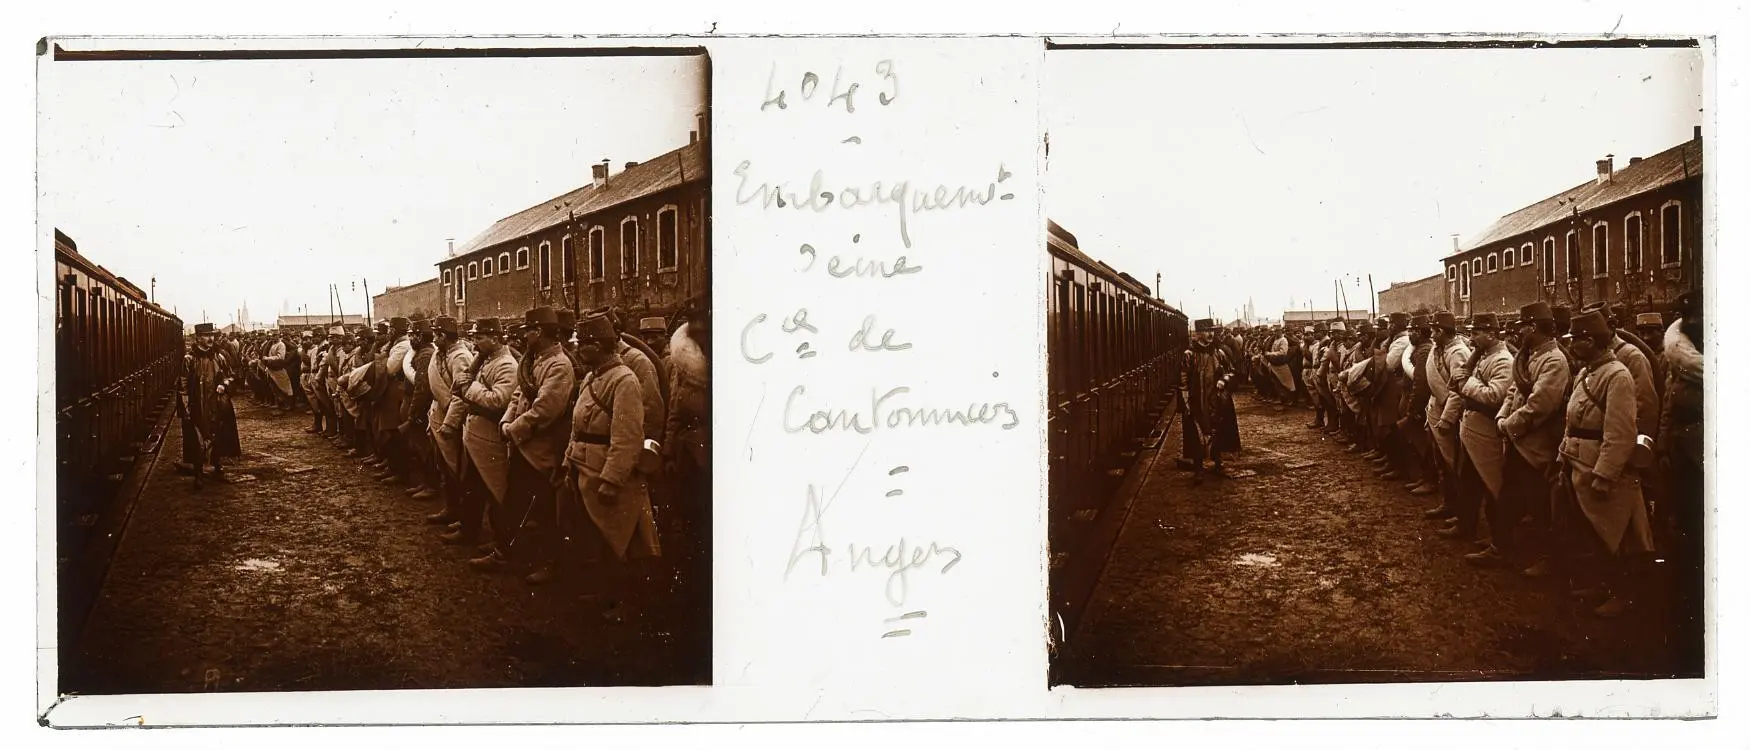 4043
Embarquemt
d'eine
Cie de
Cantonniers
Angers